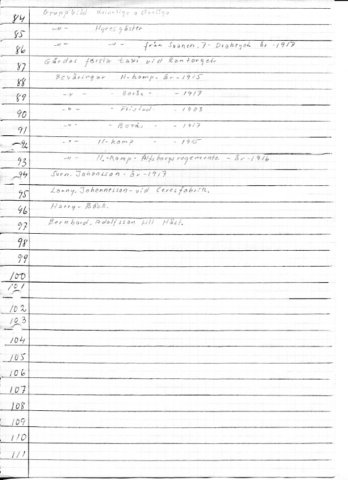 84 Gruppbild kvinnliga o Manliga
85 -"- Hyresgäster
86 -"- -"- från Svanen. 7 - Drakegat år - 1917
87 Gårdas första taxi vid
88 Beväringar 11-Komp. år - 1915
89 -"- - Borås - - 1917
90 -"- - Fristad - - 1903
91 -"- - Borås - - 1917
92 -"- 11-Komp - 1915
93 -"- 11-Komp - Älfsborgsregemente - år - 1916
94 Sven. Johansson - år - 1917
95 Johannesson - vid Ceresfabrik.
96 Harry. Bäck.
97 Bernhard. Adolfsson till Häst.
98
99
100
101
102
103
104
105
106
107
108
109
110
111